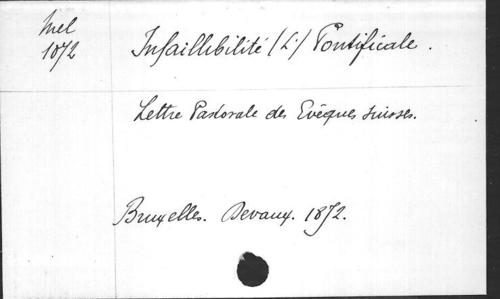 Mel
1072
Infaillibilité (L') Pontificale.
Lettre Pastorale des Evêques suisses.
Bruxelles. Devaux. 1872.